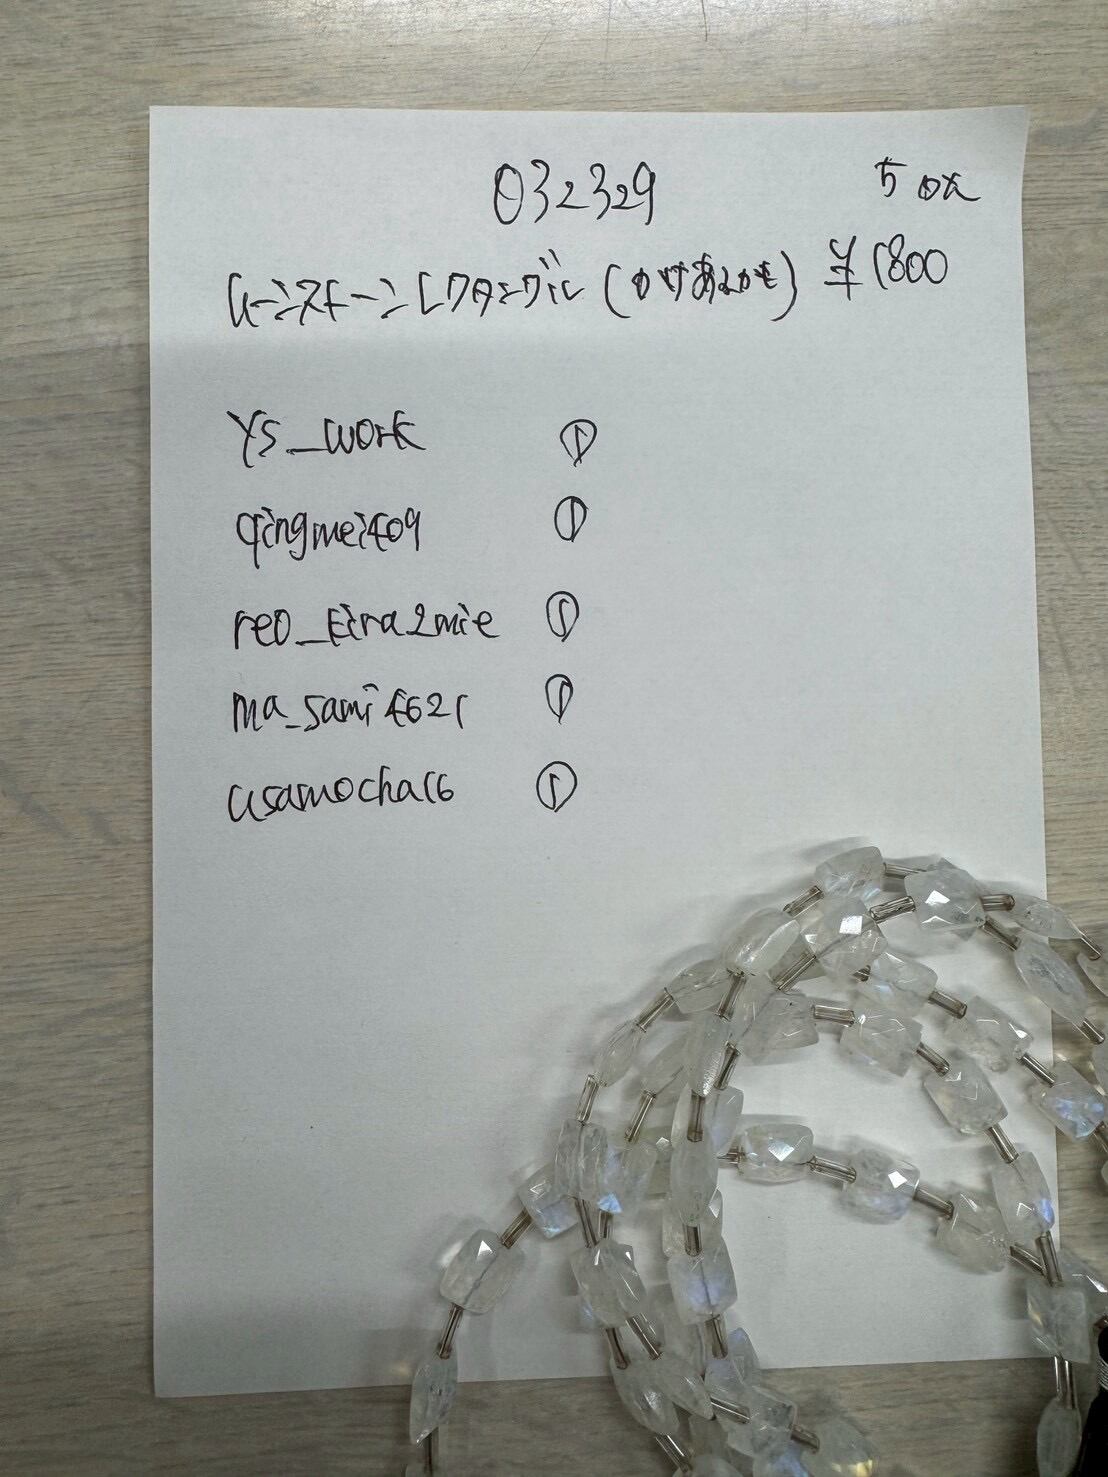 032329
ムーンストーンレクタングル(かけあるかも) ¥1800
ys_work ①
qingmei409 ①
reo_Eira2mie ①
ma_sami4621 ①
usamocha16 ①